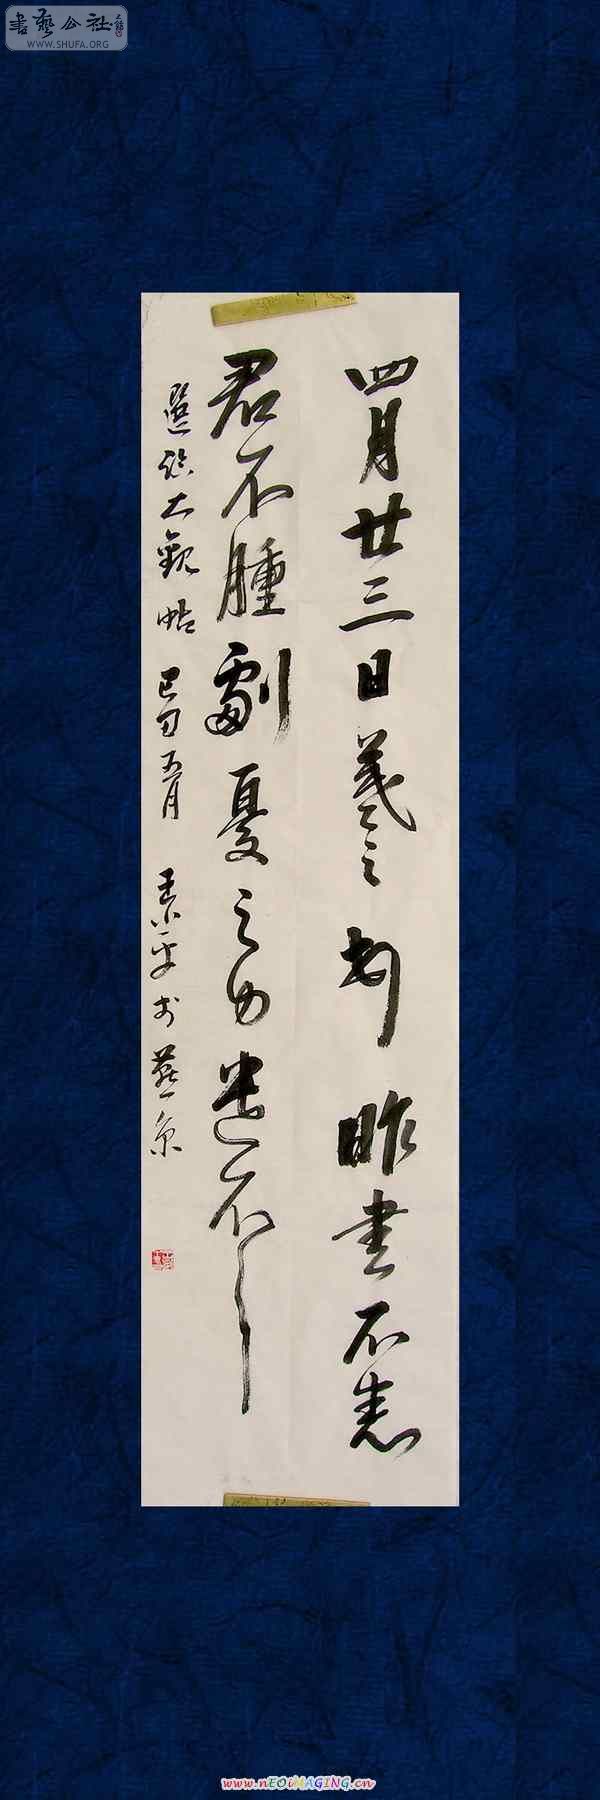 書藝公社
WWW.SHUFA.ORG
四月廿三日羲之頓首昨書不悉
君不腫劇憂之力遣不
選臨大觀帖 己丑五月 于燕京
www.nEOiMAGING.cn